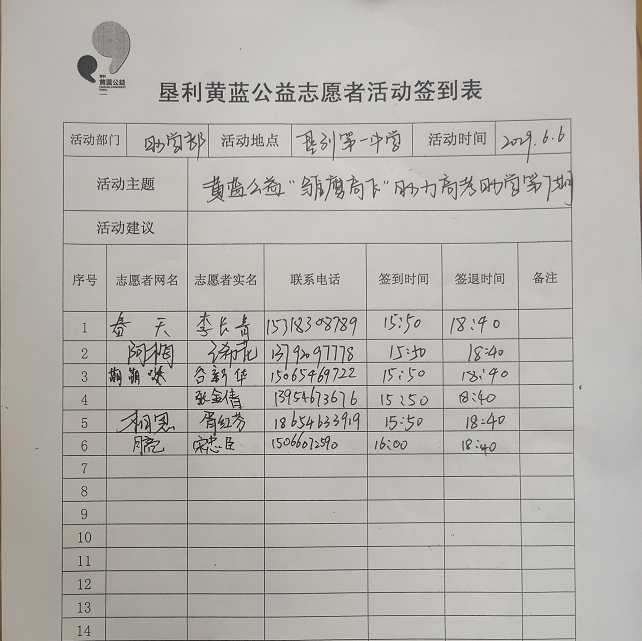 垦利
黄蓝公益
垦利黄蓝公益志愿者活动签到表
活动部门 助学部 活动地点 垦利第一中学 活动时间 2029.6.6
活动主题 黄蓝公益"雏鹰高飞"助力高考助学第7期
活动建议
序号 志愿者网名 志愿者实名 联系电话 签到时间 签退时间 备注
1 天 李长青 15318308789 15:50 18:40
2 阿梅 13792097778 15:50 18:40
3 新华 15065469722 15:50 18:40
4 张金倩 13954673676 15:50 18:40
5 相思 胥红芬 18654633919 15:50 18:40
6 月亮 宋忠臣 15066072590 16:00 18:40
7
8
9
10
11
12
13
14